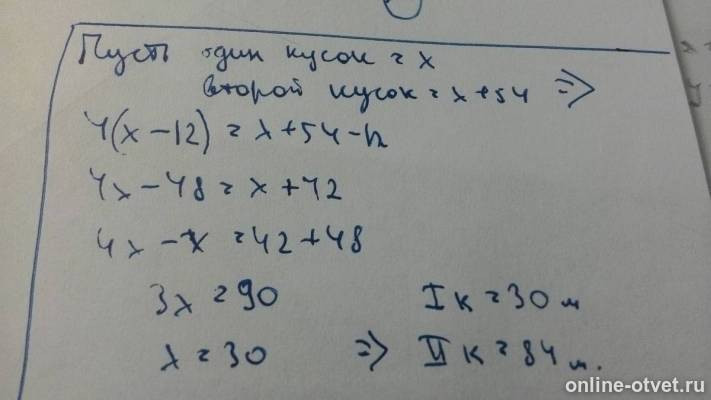 Пусть один кусок = x
второй кусок = x+54 =>
4(x-12) = x+54-12
4x-48 = x+42
4x-x = 42+48
3x = 90
I к = 30 м
x = 30 => II к = 84 м.
online-otvet.ru